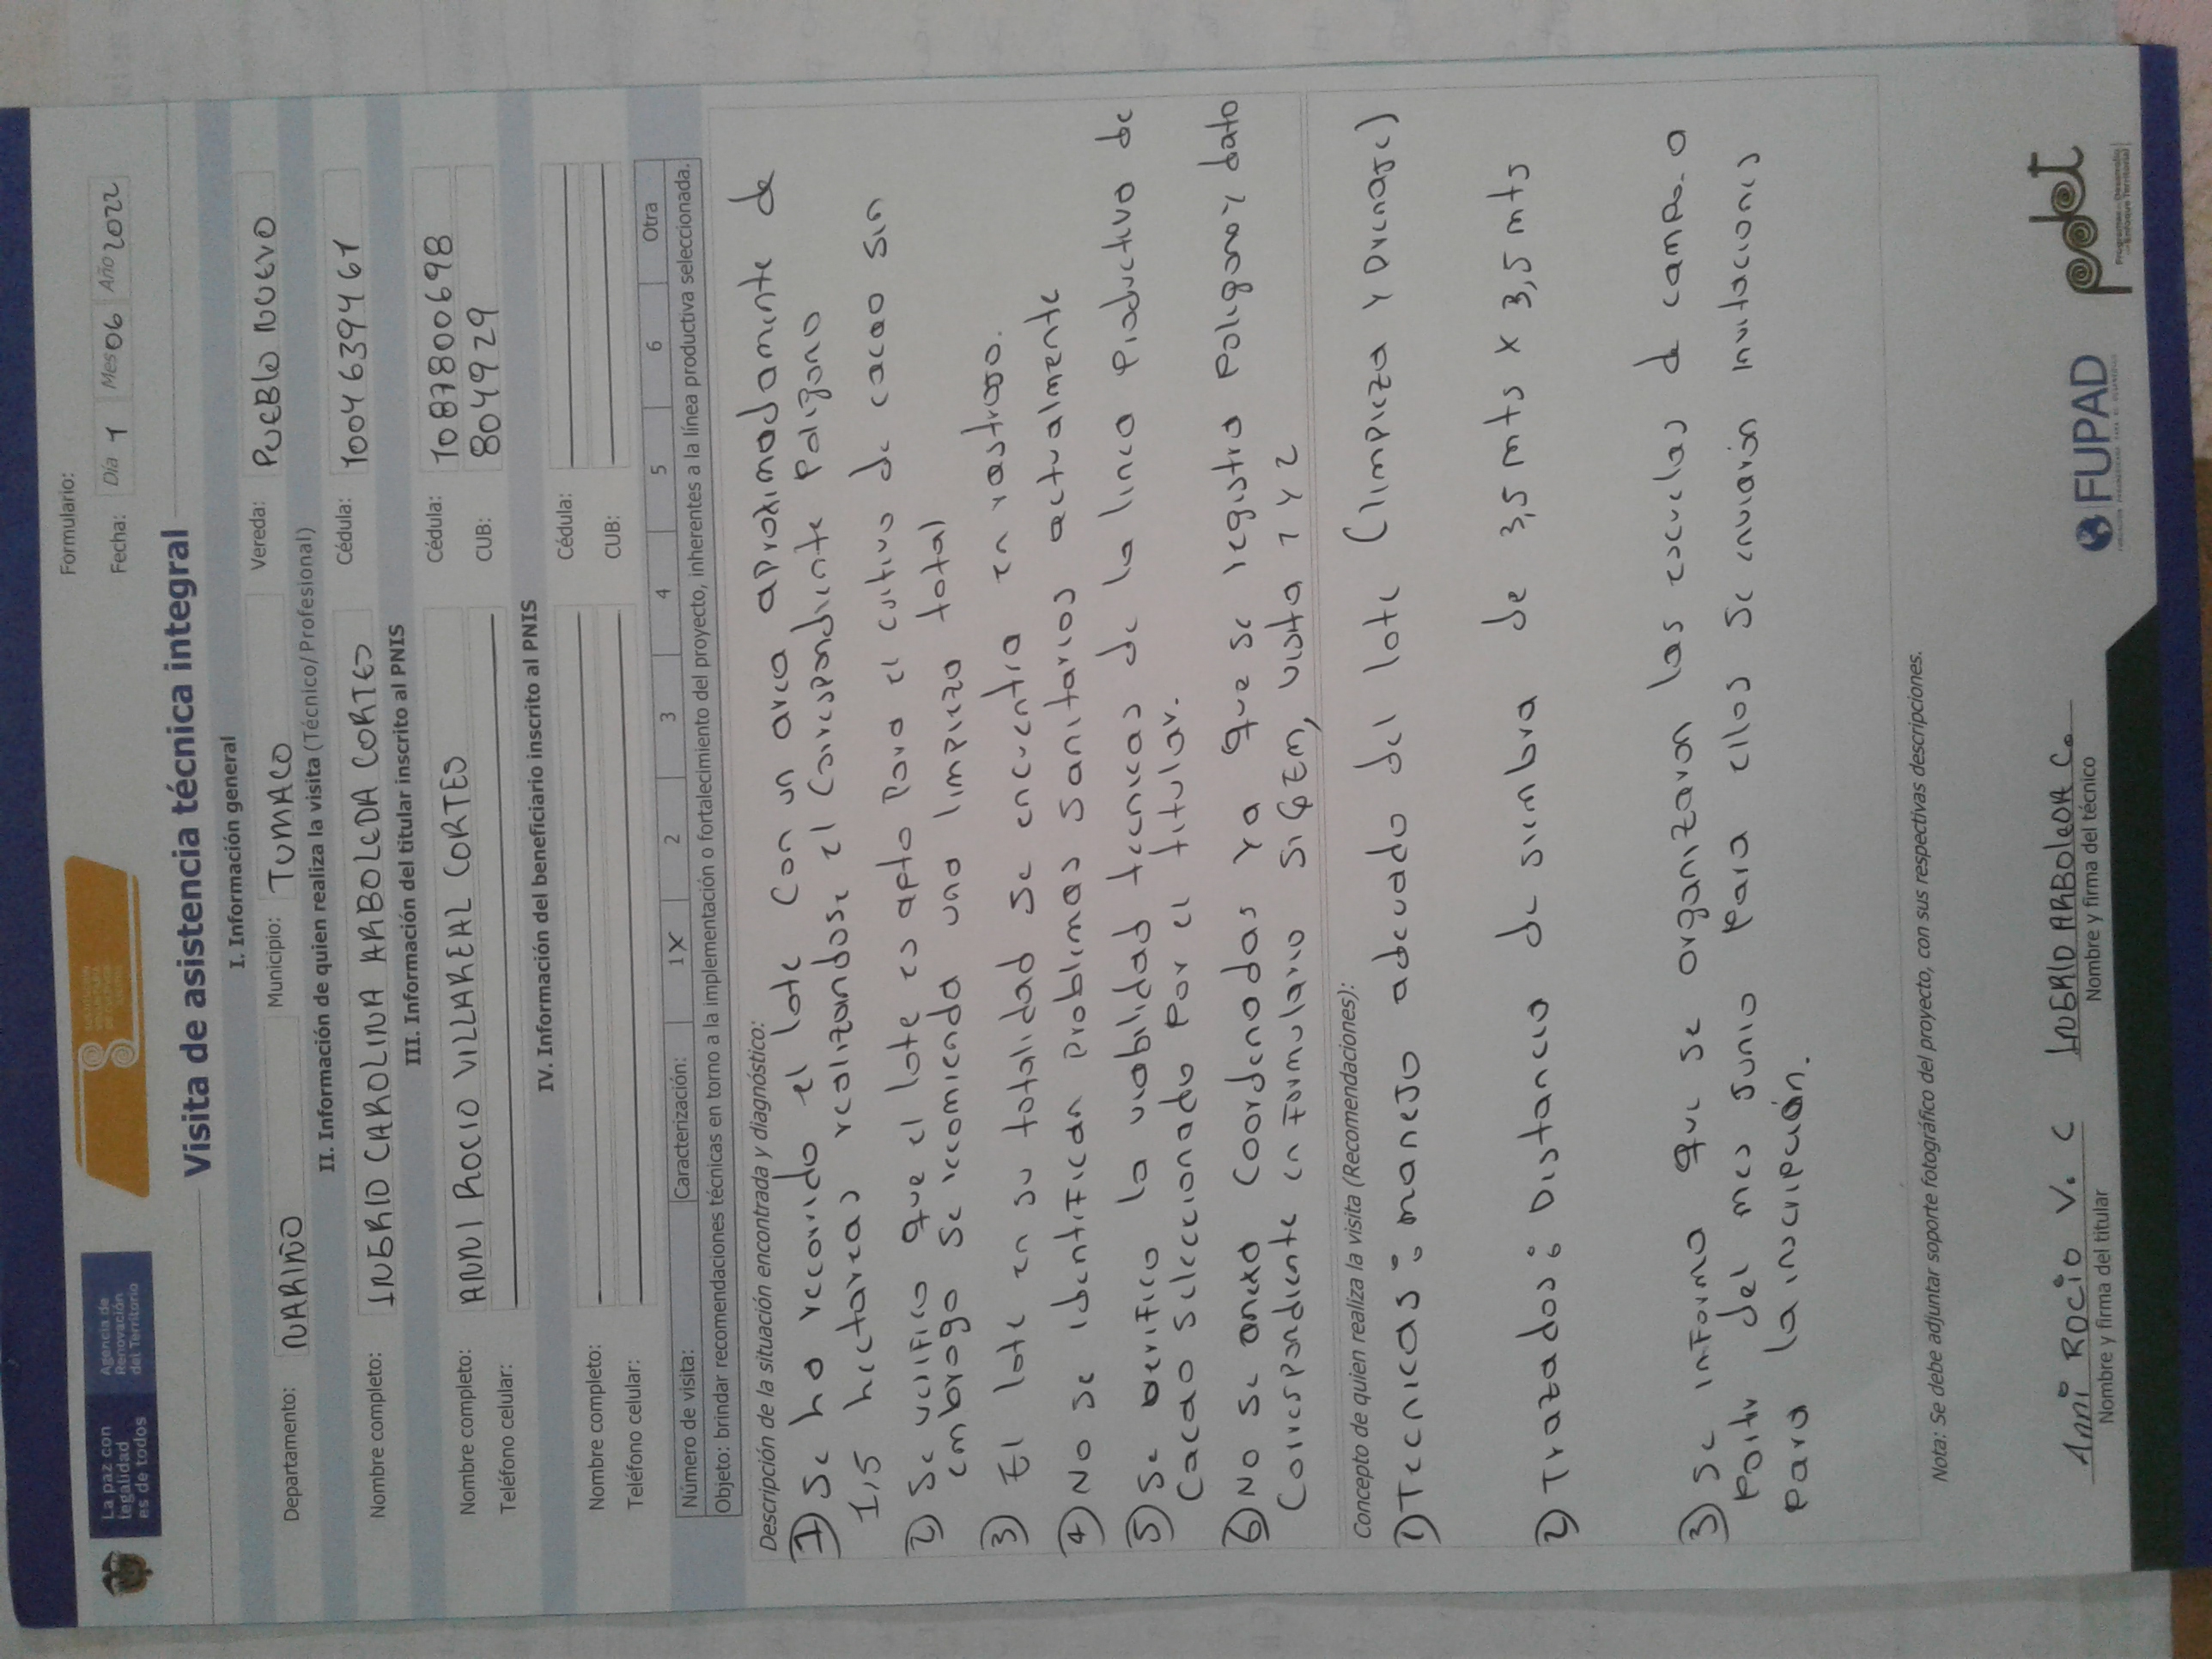 La paz con
legalidad
es de todos
Agencia de
Renovación
del Territorio
Formulario:
Fecha: Día 1 Mes 06 Año 2022
Visita de asistencia técnica integral
I. Información general
Departamento: NARIÑO Municipio: TUMACO Vereda: PUEBLO NUEVO
II. Información de quien realiza la visita (Técnico/Profesional)
Nombre completo: INGRID CAROLINA ARBOLEDA CORTES Cédula: 1004639461
III. Información del titular inscrito al PNIS
Nombre completo: ANNI ROCIO VILLAREAL CORTES Cédula: 1087800698
Teléfono celular: CUB: 8049729
IV. Información del beneficiario inscrito al PNIS
Nombre completo: Cédula:
Teléfono celular: CUB:
Número de visita: Caracterización: 1 X 2 3 4 5 6 Otra
Objeto: brindar recomendaciones técnicas en torno a la implementación o fortalecimiento del proyecto, inherentes a la línea productiva seleccionada.
Descripción de la situación encontrada y diagnóstico:
1) Se ha recorrido el lote con un area aproximadamente de
1,5 hectareas realizandose el correspondiente poligono
2) Se verifico que el lote es apto para el cultivo de cacao sin
embrago se recomienda una limpieza total
3) El lote en su totalidad se encuentra en rastrojo.
4) No se identifican problemas sanitarios actualmente
5) Se verifico la viabilidad tecnicas de la linea productivo de
Cacao seleccionado por el titular.
6) No se anexo coordenadas ya que se registro poligono y dato
Correspondiente en formulario SIGEM, visita 1 y 2
Concepto de quien realiza la visita (Recomendaciones):
1) Tecnicas: manejo adecuado del lote (limpieza y Drenaje)
2) Trazados: Distancia de siembra de 3,5 mts x 3,5 mts
3) Se informa que se organizaron las escuelas de campo a
Partir del mes Junio para ellos se enviarán invitaciones
para la inscripción.
Nota: Se debe adjuntar soporte fotográfico del proyecto, con sus respectivas descripciones.
Anni ROCIO V. C
Nombre y firma del titular
INGRID ARBOLEDA C.
Nombre y firma del técnico
FUPAD
pdet
Programas de Desarrollo
con Enfoque Territorial